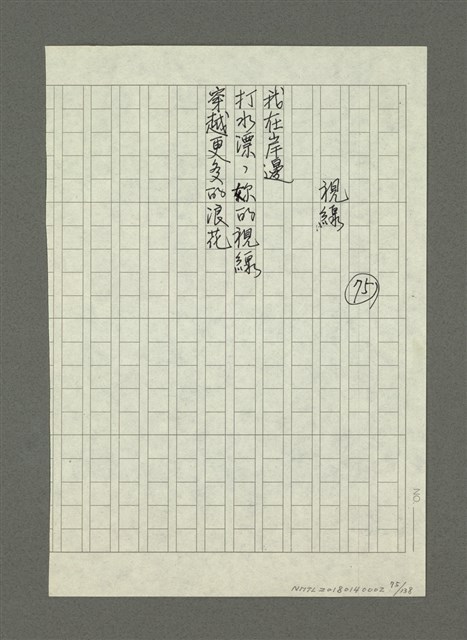 視線
75
我在岸邊
打水漂，妳的視線
穿越更多的浪花
NO.
NMTL20180140002 75/138